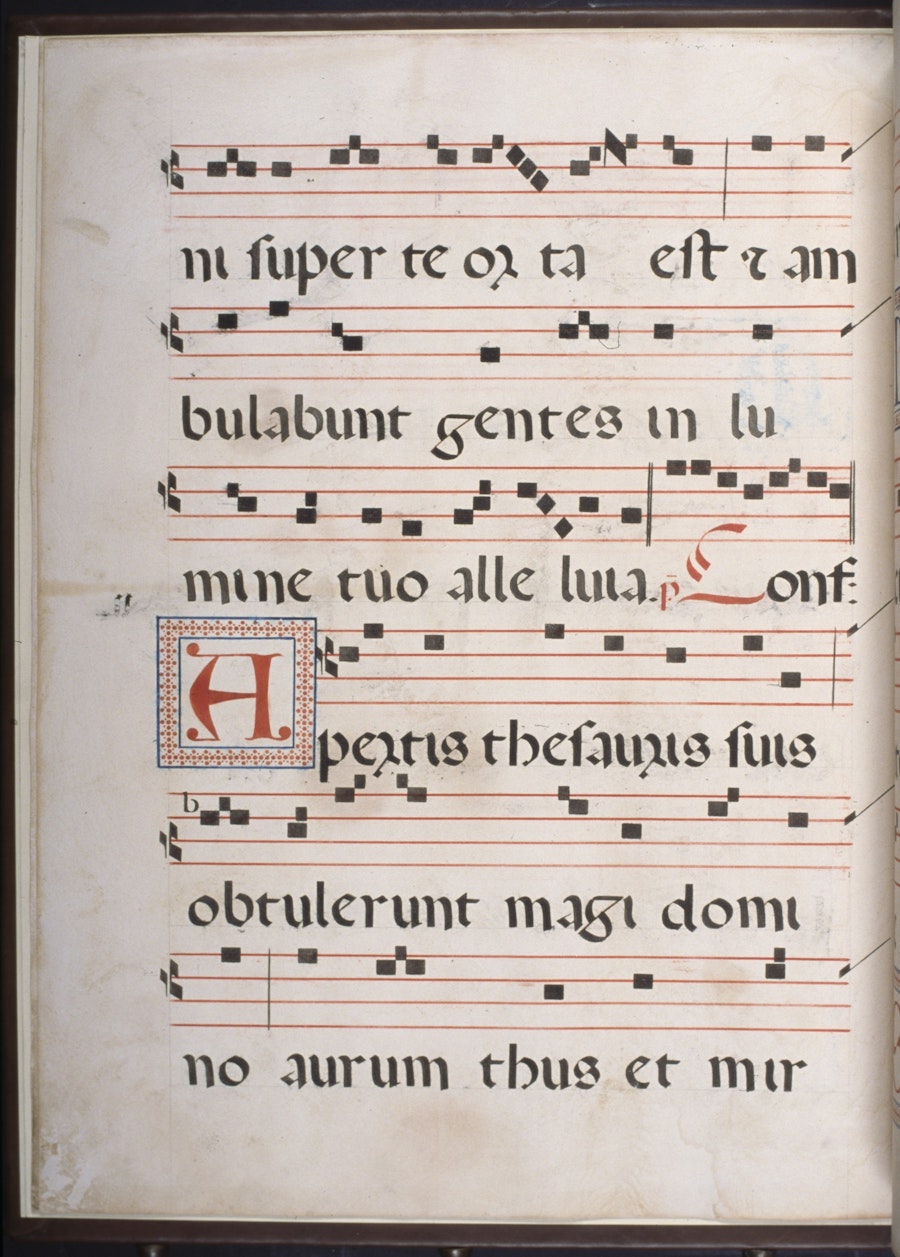 ni super te or ta est ⁊ am
bulabunt gentes in lu
mine tuo alle luia. p̄ Conf.
Apertis thesauris suis
b
obtulerunt magi domi
no aurum thus et mir